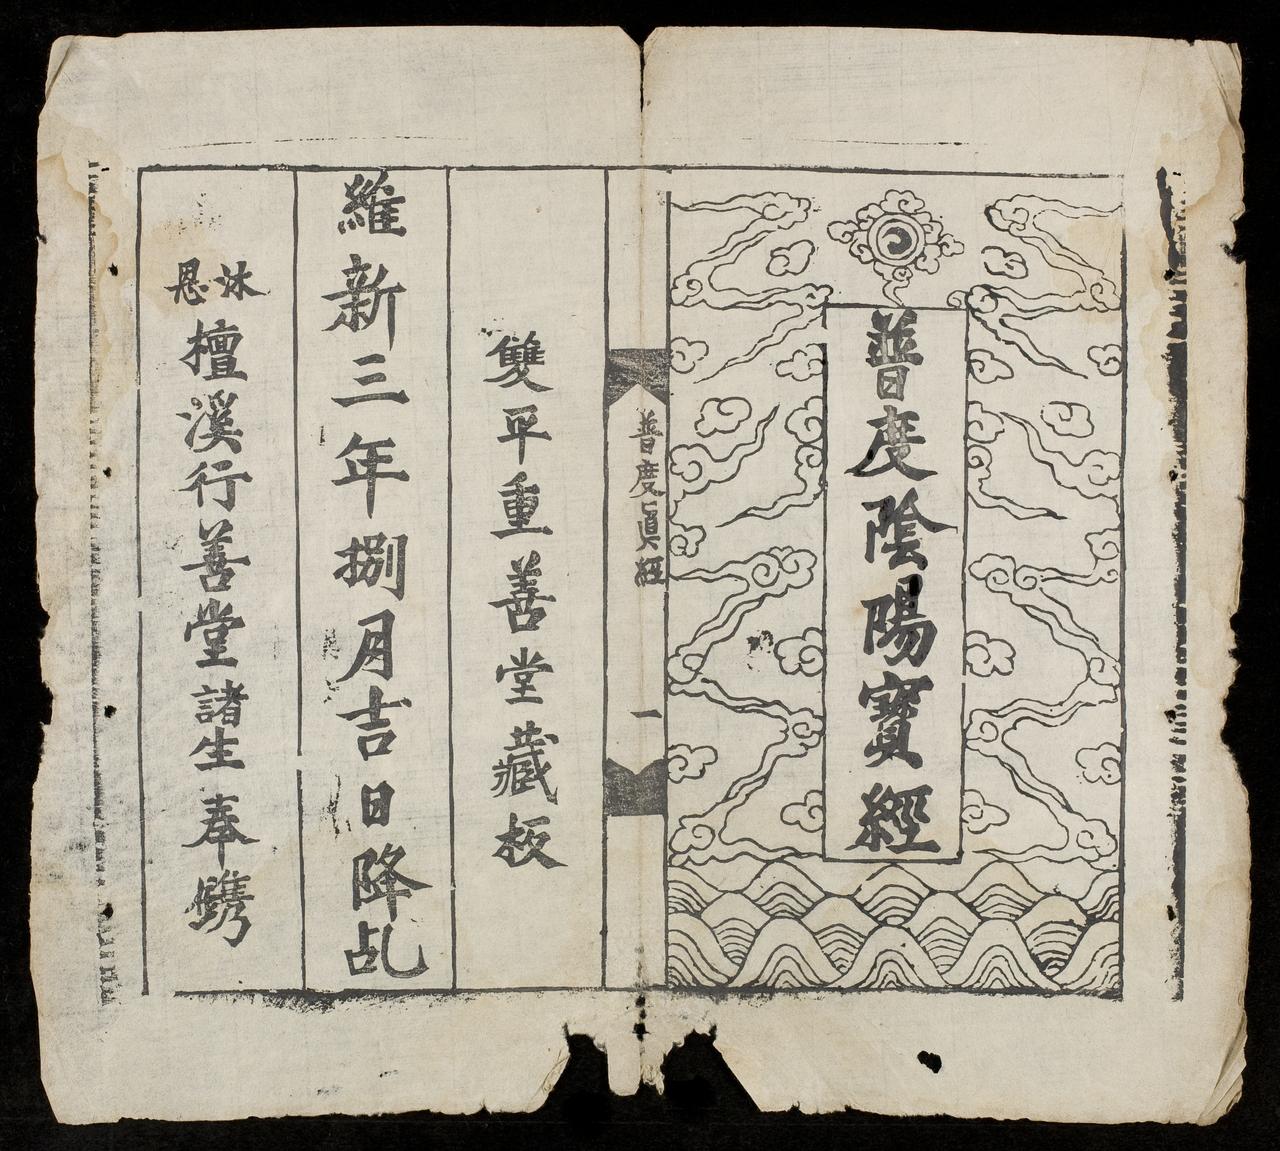 普度陰陽寶經
普度眞經
一
雙平重善堂藏板
維新三年捌月吉日降乩
沐恩檀溪行善堂諸生奉鐫